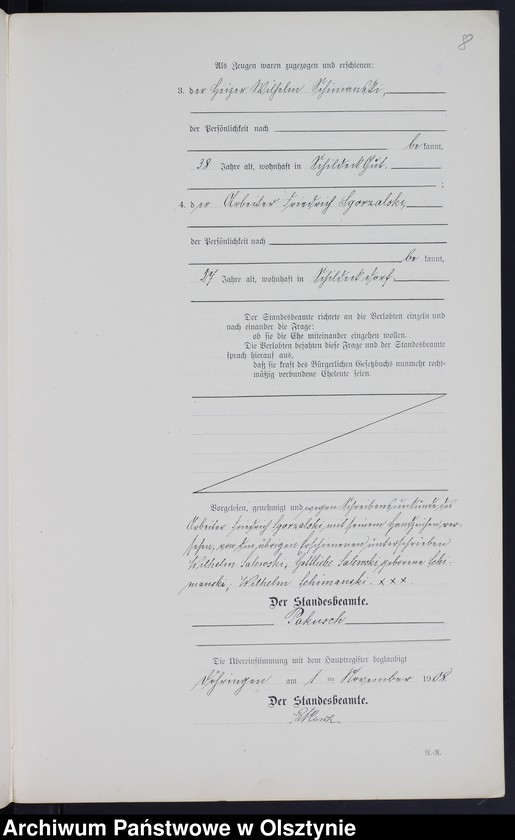 8
Als Zeugen waren zugezogen und erschienen:
3. der Heizer Wilhelm Schimanski,
der Persönlichkeit nach
be kannt,
38 Jahre alt, wohnhaft in Schildeck Gut.
;
4. der Arbeiter Friedrich Sgorzalski,
der Persönlichkeit nach
be kannt,
37 Jahre alt, wohnhaft in Schildeck dorf.
Der Standesbeamte richtete an die Verlobten einzeln und
nach einander die Frage:
ob sie die Ehe miteinander eingehen wollen.
Die Verlobten bejahten diese Frage und der Standesbeamte
sprach hierauf aus,
daß sie kraft des Bürgerlichen Gesetzbuchs nunmehr recht-
mäßig verbundene Eheleute seien.
Vorgelesen, genehmigt und wegen Schreibensunkunde des
Arbeiter Friedrich Sgorzalski mit seinem Handzeichen ver-
sehen, von den übrigen Erschienenen unterschrieben
Wilhelm Salewski, Gottliebe Salewski, geborene Schi-
manski, Wilhelm Schimanski. × × ×.
Der Standesbeamte.
Pakusch
Die Übereinstimmung mit dem Hauptregister beglaubigt
Döhringen am 1 = November 1908
Der Standesbeamte.
R.-R.
Archiwum Państwowe w Olsztynie